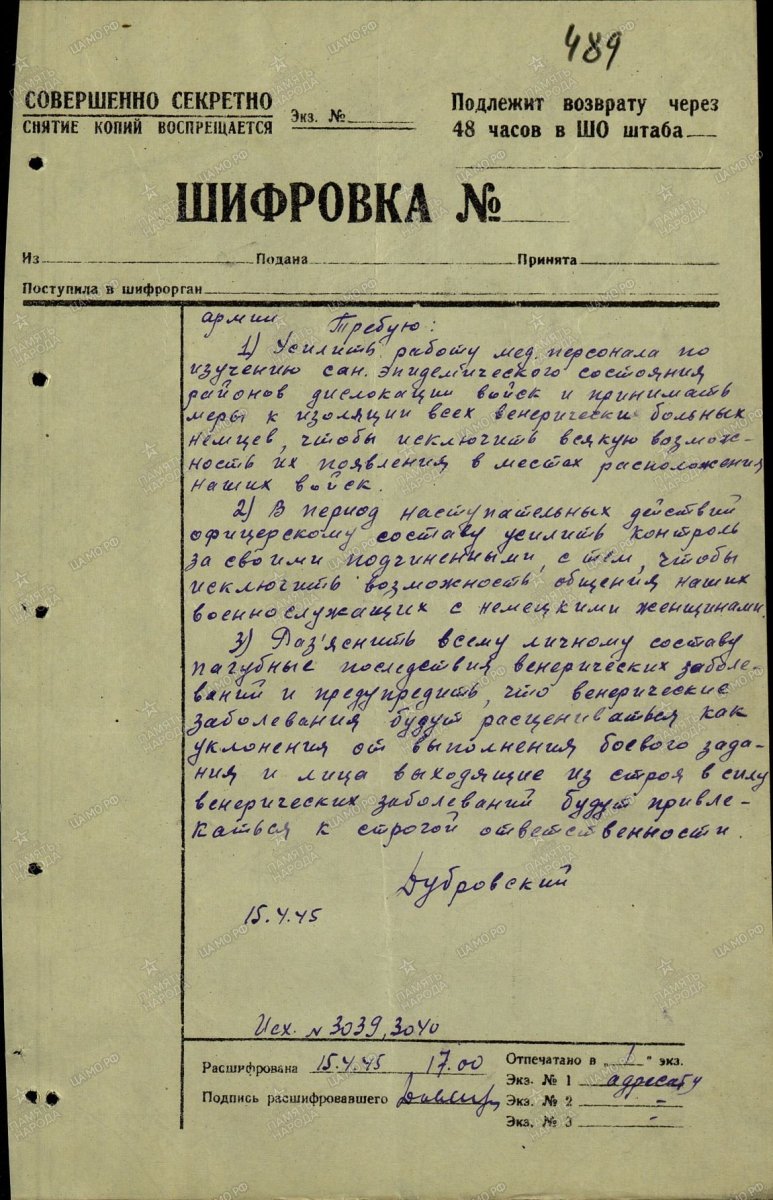 489
СОВЕРШЕННО СЕКРЕТНО
СНЯТИЕ КОПИЙ ВОСПРЕЩАЕТСЯ
Экз. №
Подлежит возврату через
48 часов в ШО штаба
ШИФРОВКА №
Из Подана Принята
Поступила в шифрорган
армии Требую:
1) Усилить работу мед. персонала по
изучению сан. эпидемического состояния
районов дислокации войск и принимать
меры к изоляции всех венерически больных
немцев, чтобы исключить всякую возмож-
ность их появления в местах расположения
наших войск.
2) В период наступательных действий
офицерскому составу усилить контроль
за своими подчиненными, с тем, чтобы
исключить возможность общения наших
военнослужащих с немецкими женщинами.
3) Раз'яснить всему личному составу
пагубные последствия венерических заболе-
ваний и предупредить, что венерические
заболевания будут расцениваться как
уклонения от выполнения боевого зада-
ния и лица выходящие из строя в силу
венерических заболеваний будут привле-
каться к строгой ответственности.
Дубровский
15.4.45
Исх. № 3039, 3040
Расшифрована 15.4.45 17.00
Подпись расшифровавшего
Отпечатано в „1" экз.
Экз. № 1 адресату
Экз. № 2 -
Экз. № 3 -
ПАМЯТЬ НАРОДА
ЦАМО.РФ